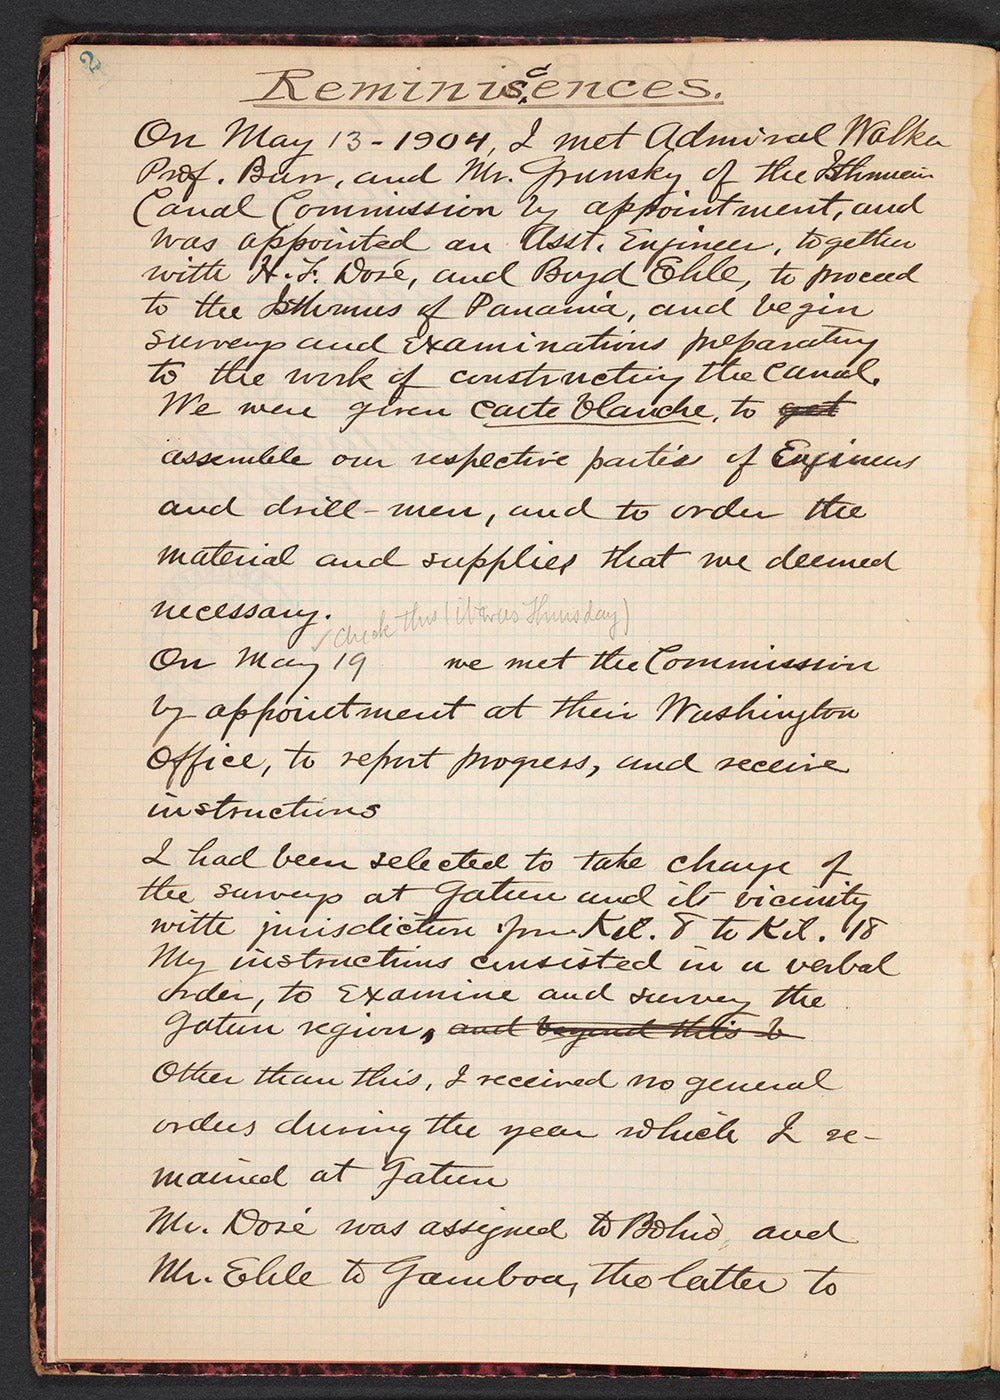 2
Reminiscences.
On May 13 - 1904, I met Admiral Walker
Prof. Burr, and Mr. Grunsky of the Isthmian
Canal Commission by appointment, and
was appointed an Asst. Engineer, together
with H. F. Dosé, and Boyd Ehle, to proceed
to the Isthmus of Panama, and begin
surveys and examinations preparatory
to the work of constructing the Canal.
We were given carte blanche, to get
assemble our respective parties of Engineers
and drill-men, and to order the
material and supplies that we deemed
necessary.
✓ check this (it was Thursday)
On May 19 we met the Commission
by appointment at their Washington
Office, to report progress, and receive
instructions
I had been selected to take charge of
the surveys at Gatun and its vicinity
with jurisdiction from Kil. 8 to Kil. 18
My instructions consisted in a verbal
order, to examine and survey the
Gatun region, and beyond this b
Other than this, I received no general
orders during the year which I re-
mained at Gatun
Mr. Dosé was assigned to Bohio and
Mr. Ehle to Gamboa, the latter to